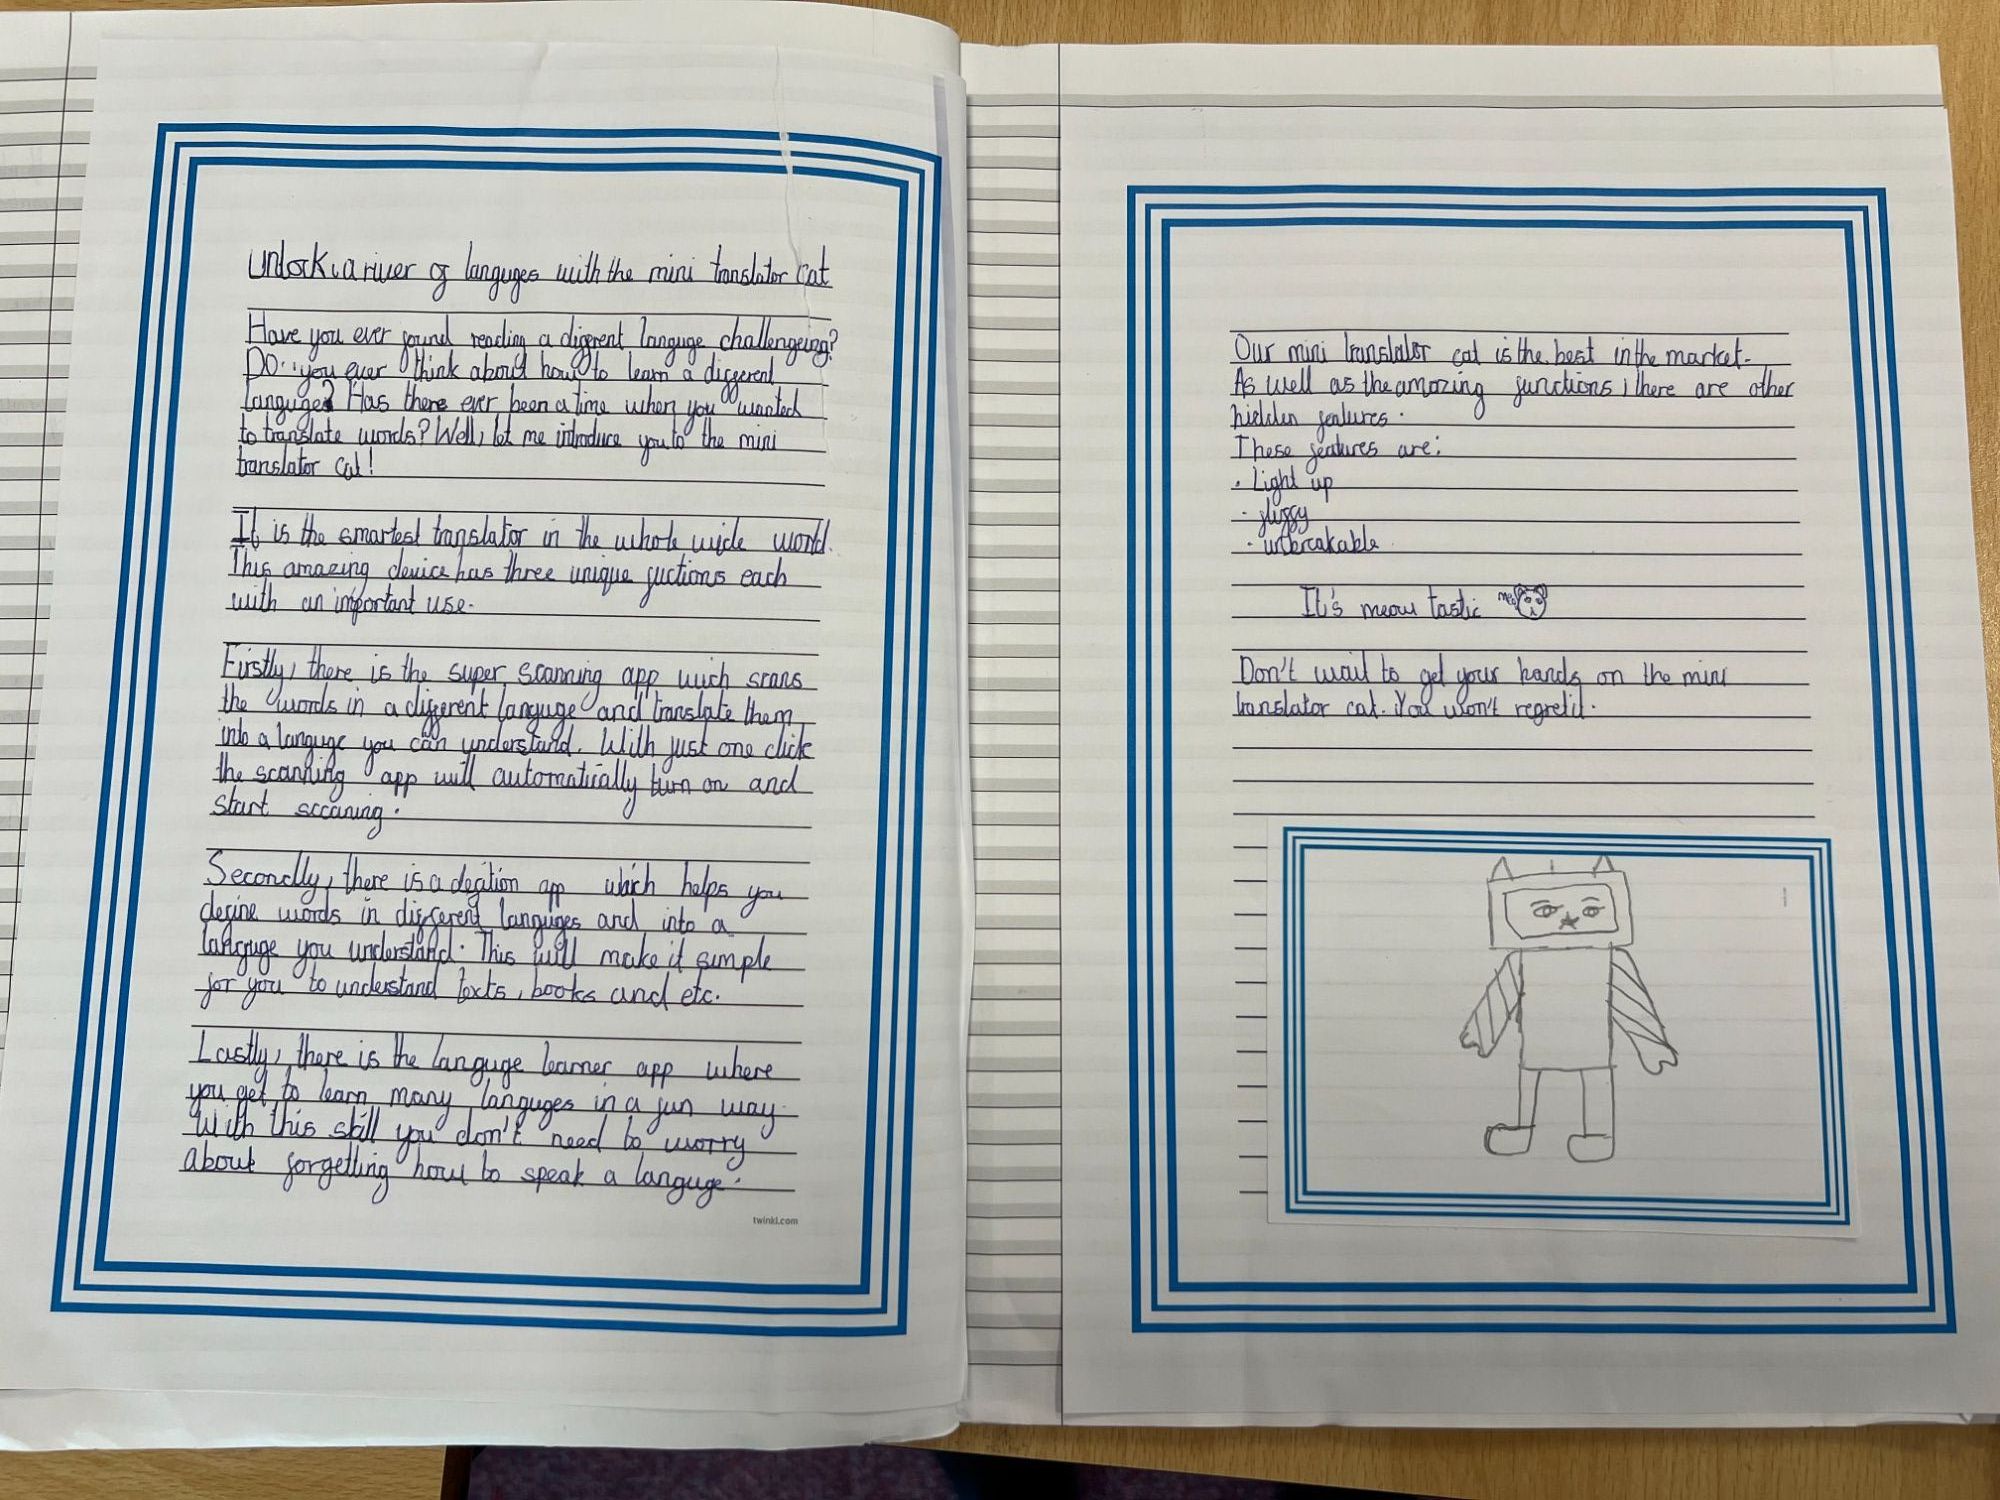 Unlock a river of languges with the mini translator cat
Have you ever found reading a different languge challengeing?
Do you ever think about how to learn a different
languge? Has there ever been a time when you wanted
to translate words? Well, let me introduce you to the mini
translator cat!
It is the smartest translator in the whole wide world.
This amazing device has three unique fuctions each
with an important use.
Firstly, there is the super scanning app wich scans
the words in a different languge and translate them
into a languge you can understand. With just one click
the scanning app will automatically turn on and
start sccaning.
Secondly, there is a defition app which helps you
define words in different languges and into a
languge you understand. This will make it simple
for you to understand texts, books and etc.
Lastly, there is the languge learner app where
you get to learn many languges in a fun way.
With this skill you don't need to worry
about forgetting how to speak a languge.
twinkl.com
Our mini translator cat is the best in the market.
As well as the amazing functions, there are other
hidden features.
These features are:
· Light up
· fluffy
· unbreakable
It's meow tastic
Don't wait to get your hands on the mini
translator cat. You won't regret it.